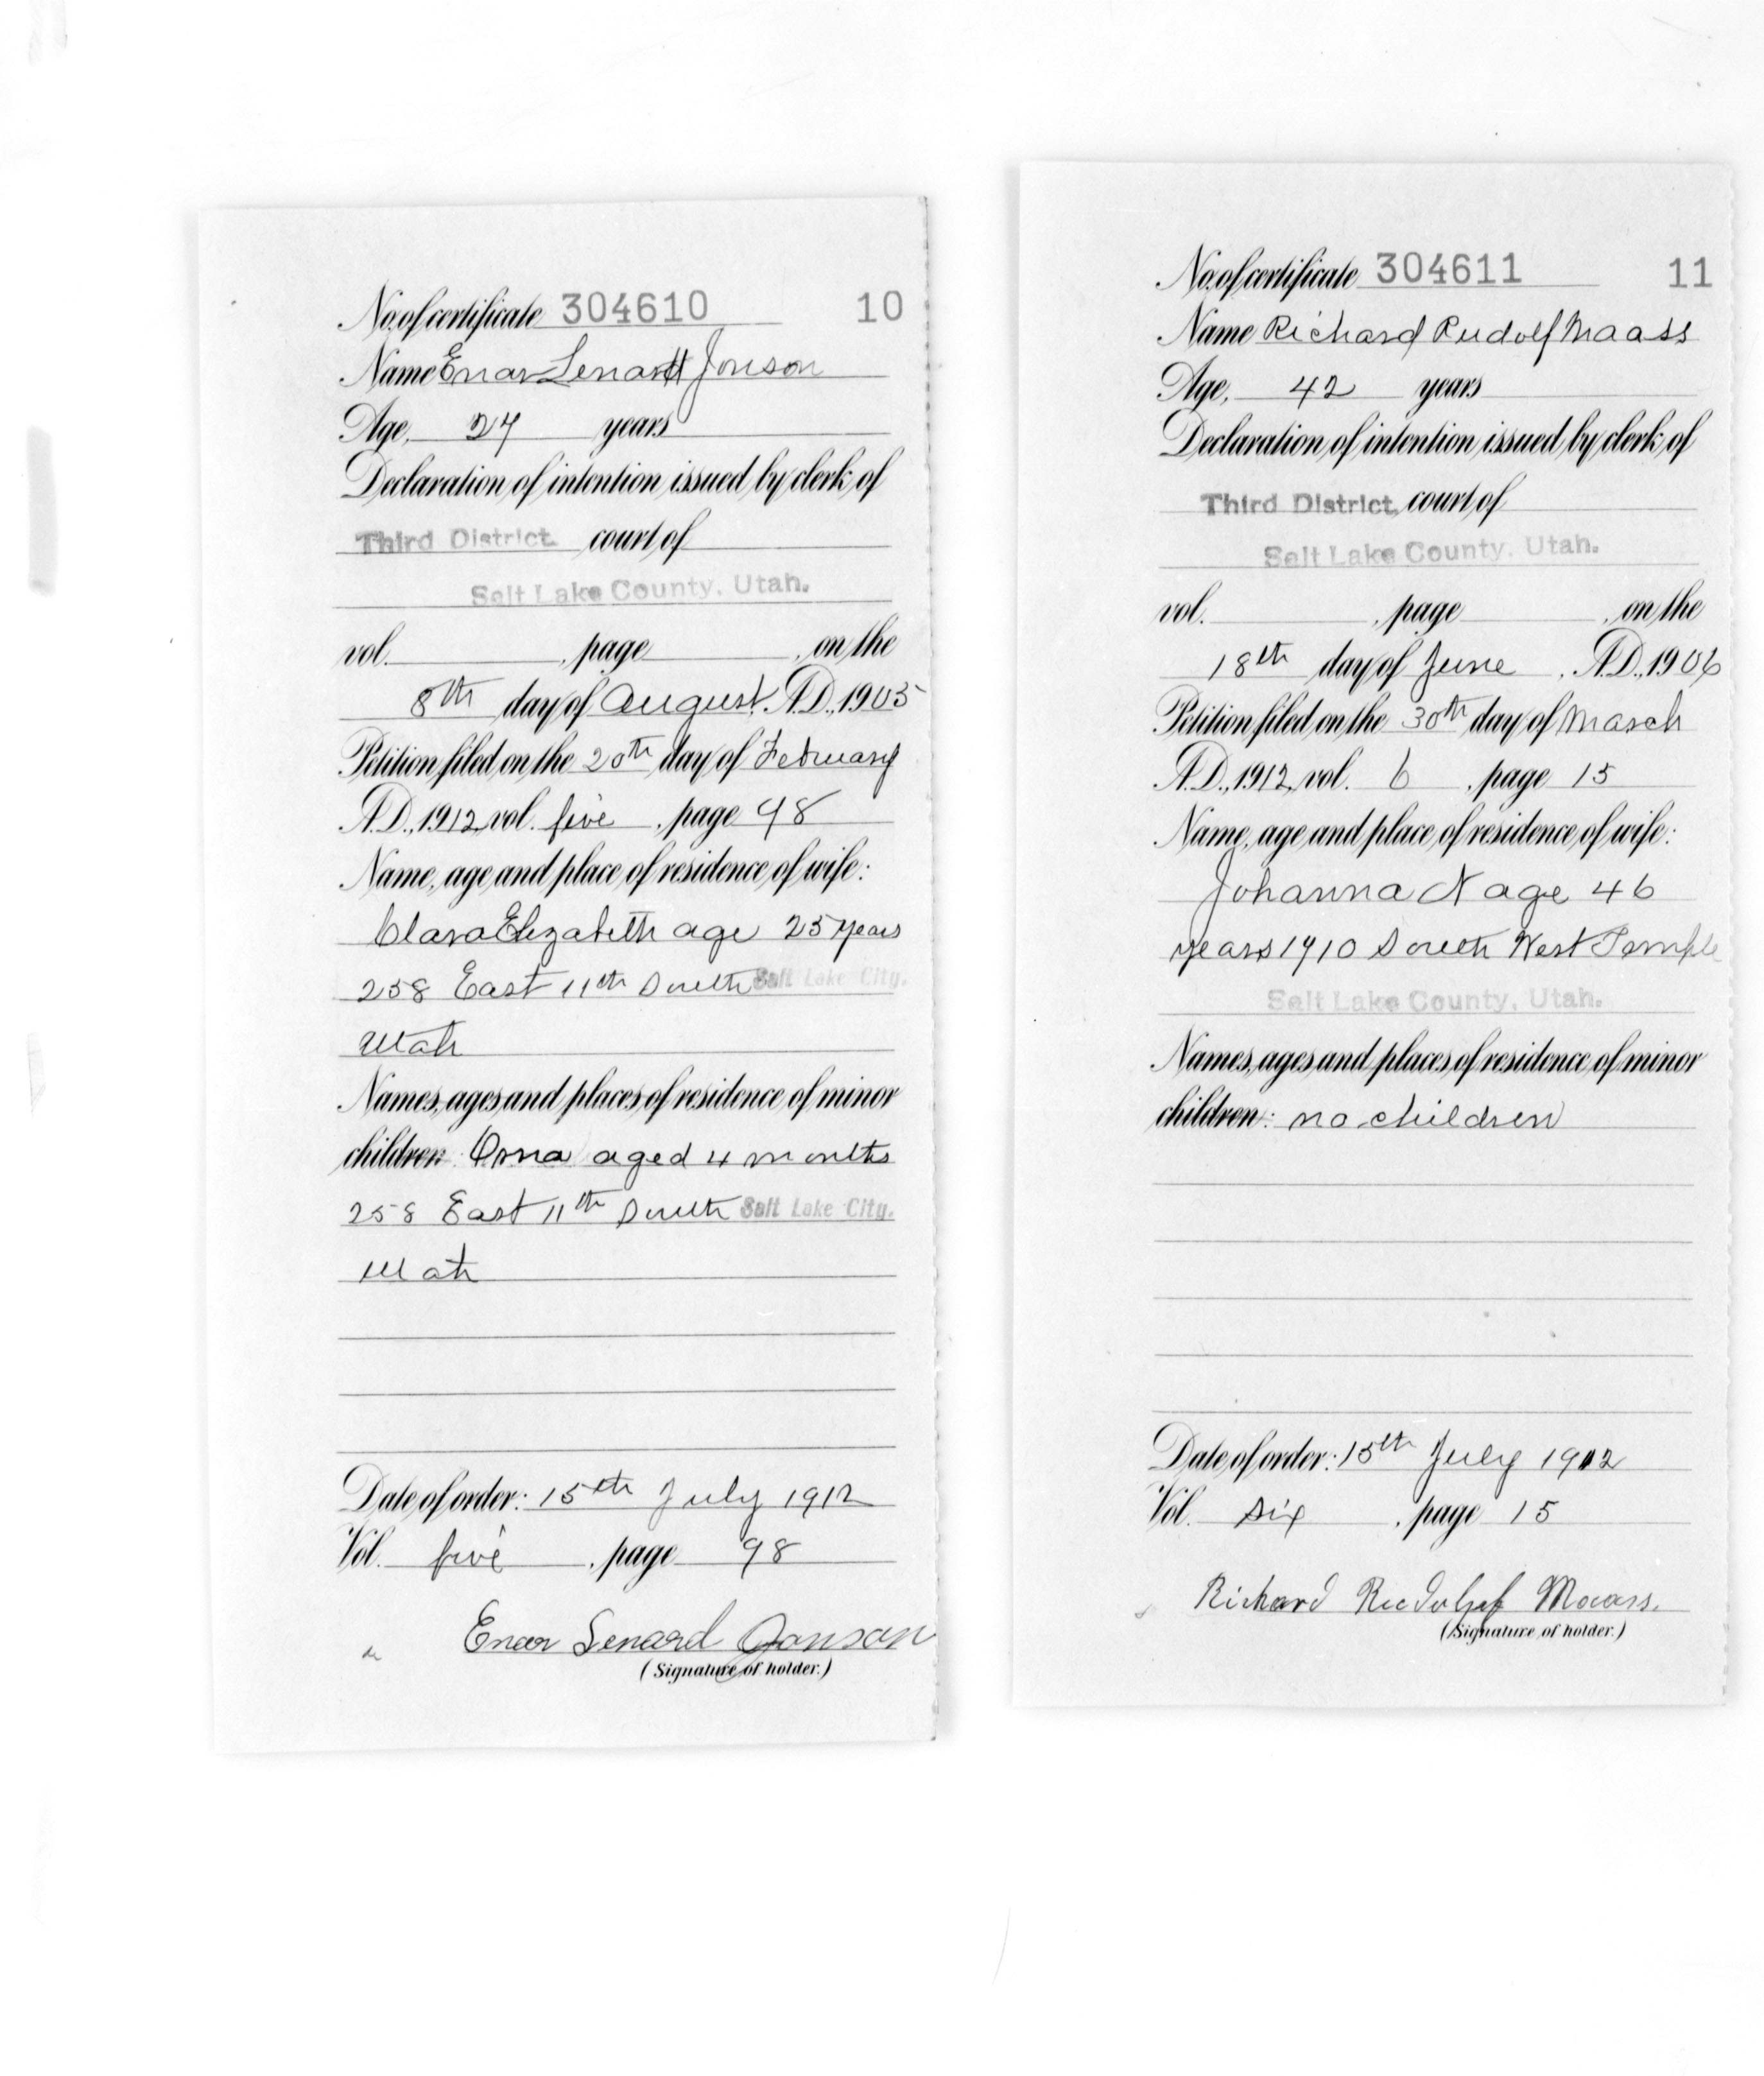 No. of certificate 304610 10
Name Enar Lenartt Jonson
Age, 27 years
Declaration of intention issued by clerk of
Third District court of
Salt Lake County, Utah.
vol. , page , on the
8th day of August, A.D., 1905
Petition filed on the 20th day of February
A.D., 1912, vol. five , page 98
Name, age and place of residence of wife:
Clara Elizabeth age 25 years
258 East 11th South Salt Lake City.
Utah
Names, ages and places of residence of minor
children: aged 4 months
258 East 11th South Salt Lake City.
Utah
Date of order: 15th July 1912
Vol. five , page 98
Enar Lenard Jonson
(Signature of holder.)
No. of certificate 304611 11
Name Richard Rudolf Maass
Age, 42 years
Declaration of intention issued by clerk of
Third District court of
Salt Lake County, Utah.
vol. , page , on the
18th day of June , A.D., 1906
Petition filed on the 30th day of March
A.D., 1912, vol. 6 , page 15
Name, age and place of residence of wife:
Johanna N age 46
years 1910 South West Temple
Salt Lake County, Utah.
Names, ages and places of residence of minor
children: no children
Date of order: 15th July 1912
Vol. six , page 15
Richard Rudolf Maass.
(Signature of holder.)